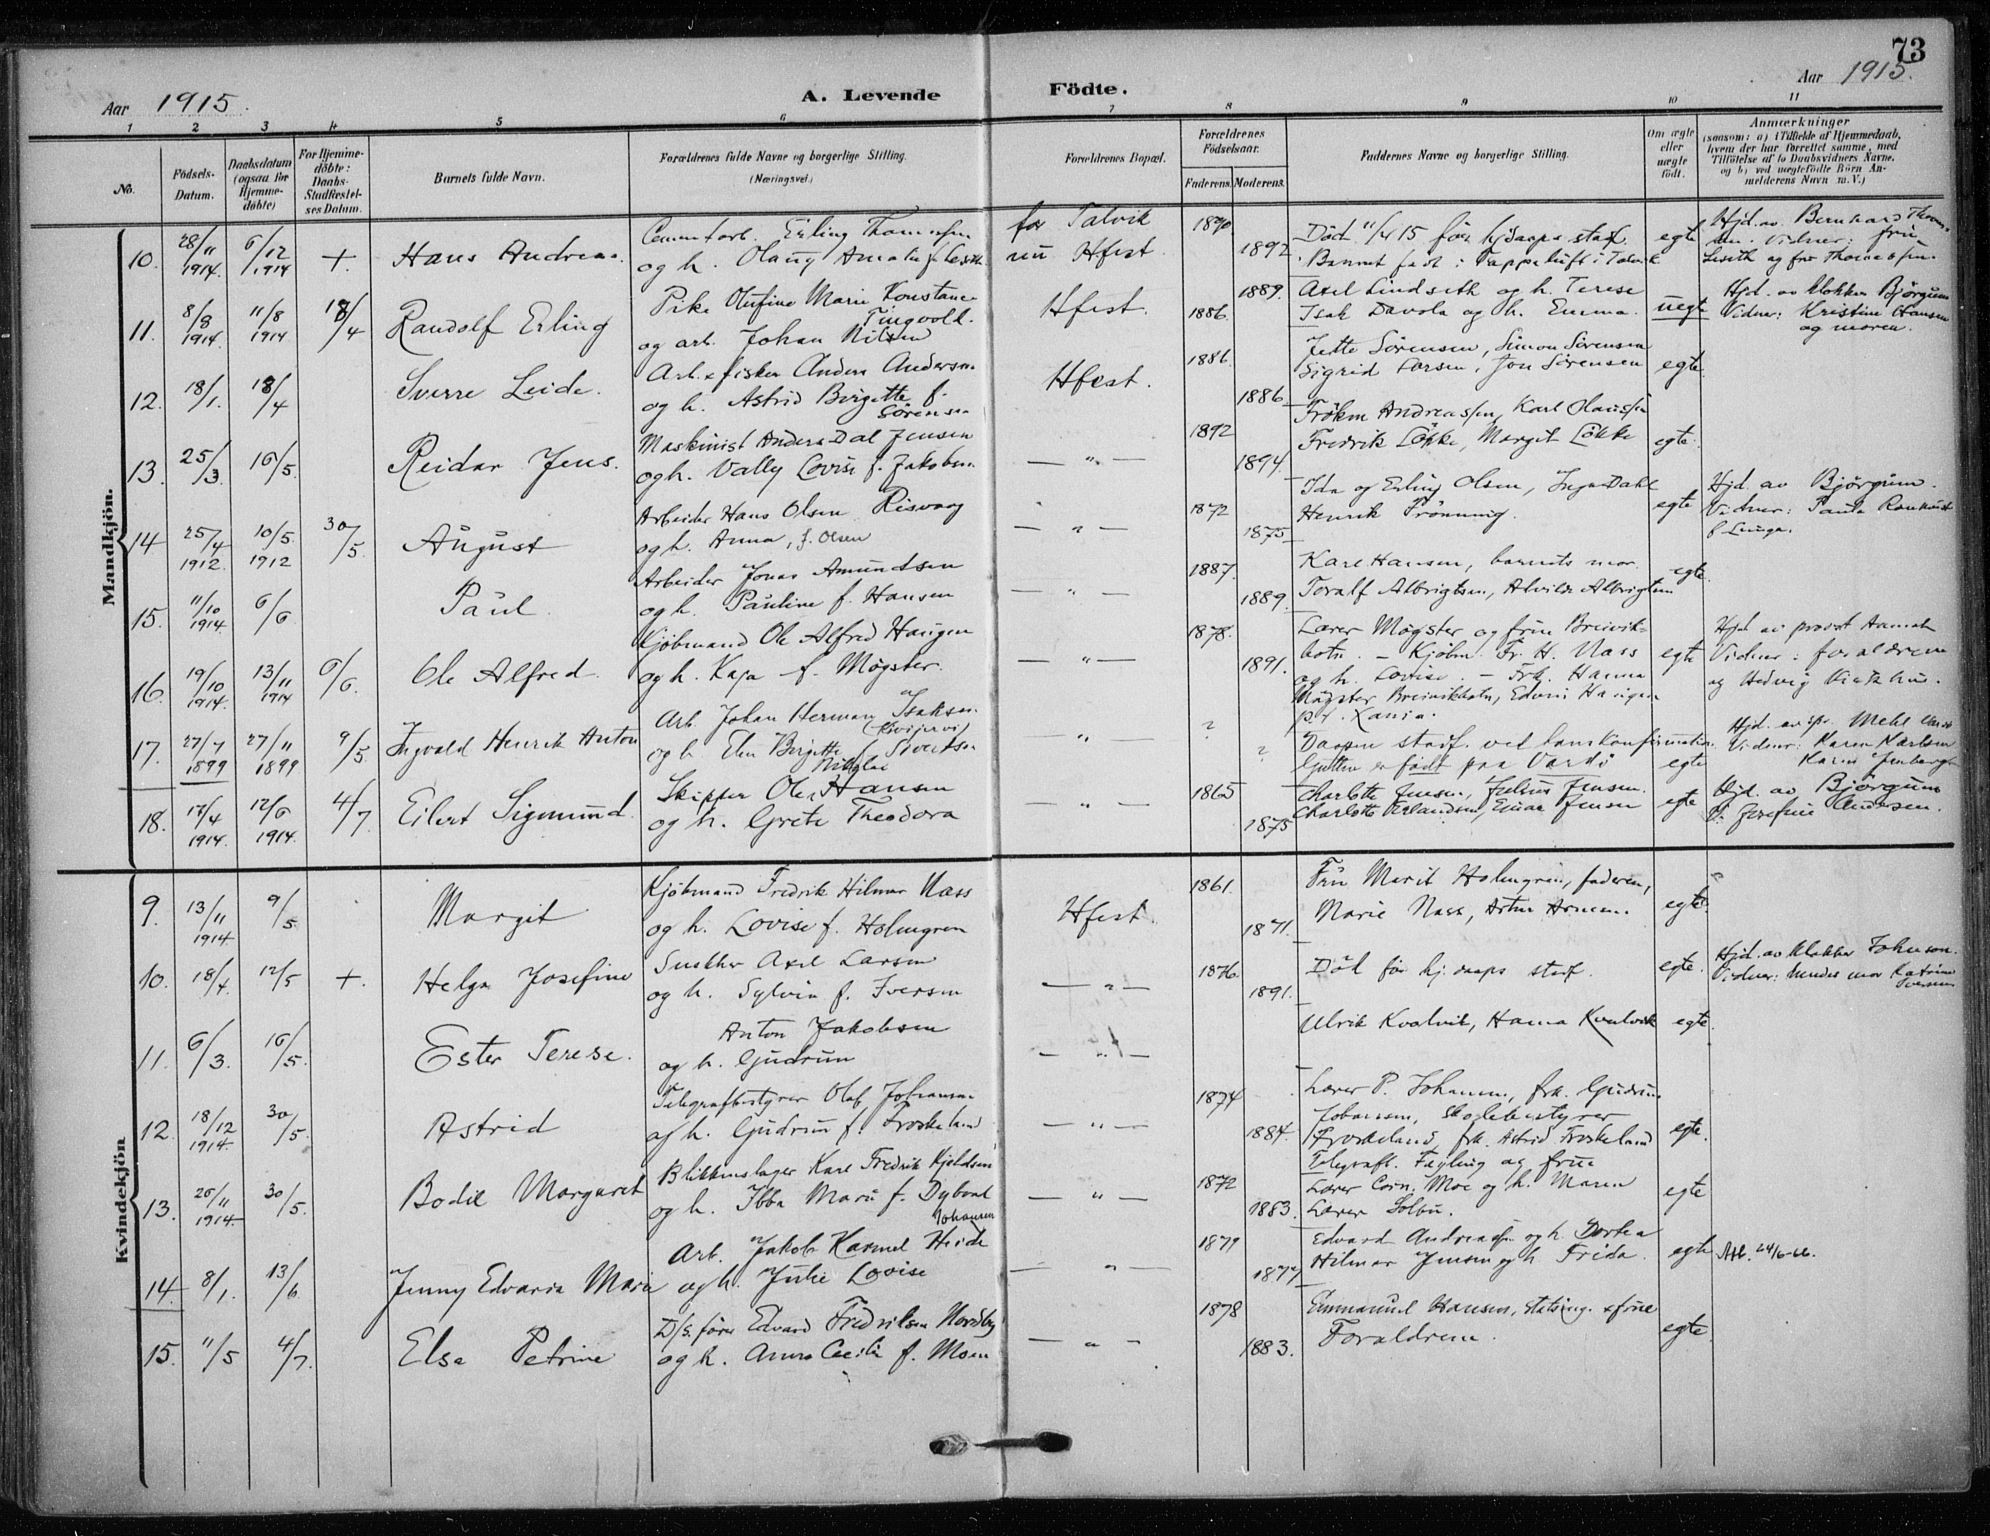 73
Aar 1915.
A. Levende Födte.
Aar 1915.
1 2 3 4 5 6 7 8 9 10 11
No.
Födsels-Datum.
Daabsdatum (ogsaa for Hjemme-döbte)
For Hjemme-döbte: Daabs-Stadfæstel-ses Datum.
Barnets fulde Navn.
Forældrenes fulde Navne og borgerlige Stilling.
(Næringsvei.)
Forældrenes Bopæl.
Forældrenes Födselsaar.
Faderens. Moderens.
Faddernes Navne og borgerlige Stilling.
Om ægte eller uægte födt.
Anmærkninger
(saasom: a) i Tilfælde af Hjemmedaab, hvem der har forrettet samme, med Tilföielse af to Daabsvidners Navne, og b) ved uægtefödte Börn An-melderens Navn m. V.)
Mandkjön.
10. 28/11 1914. 6/12 1914 +. Hans Andreas. Erling Thomassen
og h. Olaug Amalie f.
før Talvik
nu Hfest. 1890 1892
Død 11/4 15 før hjdaaps staf.
Barnet født i i Talvik
egte
Hjd. av Bernhard
Vidner: fru
11. 8/8 1914. 11/8 1914 18/4 Randolf Erling
Pike Olufine Marie Konstance Tingvold.
og arb. Johan Nilsen
Hfest. 1889. 1886.
Axel Lindseth og h. Terese
Isak Davola og h. Emma.
uegt
Hjd. av klokker Björgum
Vidner: Kristine Hansen
og moren.
12. 18/1. 18/4 Sverre Leide.
Arb. & fisker Anders Andersen
og h. Astrid Birgitte f. Sörensen
Hfest. 1886 1886
Jette Sörensen, Simon Sörensen
Sigrid Larsen, Jon Sörensen
egte.
13. 25/3. 16/5. Reidar Jens.
Maskinist Anders Dal Jensen
og h. Vally Lovise f. Jakobsen.
— " — 1892 1894.
Andreassen, Karl Olaussen
Fredrik Lökke, Margit Lökke
egte.
14 25/4 1912. 10/5 1912 30/5. August
Arbeider Hans Olsen Risvaag
og h. Anna, f. Olsen
— " — 1872 1875
Ida og Erling Olsen, Inga Dahl
Henrik Frönning.
egte
Hjd. av Björgum.
Vidner: Paula
15. 11/10 1914 6/6 Paul.
Arbeider Jonas Amundsen
og h. Pauline f. Hansen
— " — 1887. 1889.
Kare Hansen, barnets mor.
Toralf Albrigtsen, Alvilde Albrigtsen
egte.
16. 19/10 1914. 13/11 1914 6/6. Ole Alfred.
Kjöbmand Ole Alfred Haugen
og h. Kaja f. Mögster.
— " — 1878. 1891.
Lærer Mögster og frue Breivik-
botn. – Kjöbm. Fr. H. Nass
og h. Lovise. – Frk. Hanna
Mögster Breivikbotn, Edvin Haugen
egte
Hjd. av provst
Vidner: forældrene
og Hedvig
17. 27/7 1899 27/11 1899 9/5. Ingvald Henrik Anton
Arb. Johan Herman Isaksen
og h. Elen Birgitte f. Sivertsen
" ? ?
Daapen stadf. ved konfirmation.
Gutten er født paa Vardö
egte
Vidner: Karen Karlsen
18. 17/4 1914. 12/6 1914. 4/7 Eilert Sigmund.
Skipper Ole Hansen
og h. Grete Theodora
— " — 1865 1875
Charlotte Jensen, Julius Jensen.
Charlotte Erlandsen, Einar Jensen
egte
Hjd. av Björgum
V: Josefine Andersen.
Kvindekjön
9. 13/11 1914 9/5. Margit
Kjöbmand Fredrik Hilmar Nass
og h. Lovise f. Holmgren
Hfest. 1861. 1871.
Fru Marit Holmgren, faderen,
Marie Nass, Artur Arnesen.
egte.
10. 18/4. 12/5 +. Helga Josefine
Axel Larsen
og h. Sylvia f. Iversen
— " — 1876. 1891.
Död før hj.daaps stadf.
egte.
Hjd. av klokker Johnson.
Vidner: hendes mor Katrine Iversen
11. 6/3. 16/5. Ester Terese.
Anton Jakobsen
og h. Gudrun
— " —
Ulrik Kvalvik, Hanna Kvalvik egte.
12. 18/12 1914. 30/5. Astrid
Telegrafbestyrer Olaf Johansen
og h. Gudrun f. Froskeland
— " — 1874 1884.
Lærer P. Johansen, frk. Gudrun
Johansen, Skolebestyrer
Froskeland, frk. Astrid Froskeland
Telegraf. Fagling og frue
egte.
13. 20/11 1914. 30/5. Bodil Margaret
Blikkenslager Karl Fredrik Kjeldsen
og h. Ibba Marie f. Dybvat Johansen
— " — 1872 1883.
Lærer Corn. Moe og h. Maren
Lærer Solbu.
egte
14. 8/1. 13/6 Jenny Edvarda Marie
Arb. Jakob Karmel Heide
og h. Julie Lovise
— " — 1879 1877
Edvard Andreassen og h. Dortea
Hilmar Jensen og h. Frida.
egte Att. 24/6-66.
15. 11/5 4/7. Else Petrine
D/S. förer Edvard Fredriksen Nordby
og h. Anna Cecilie f. Moen
— " — 1878 1883.
Emmanuel Hansen, statsing. & frue
Forældrene.
egte.